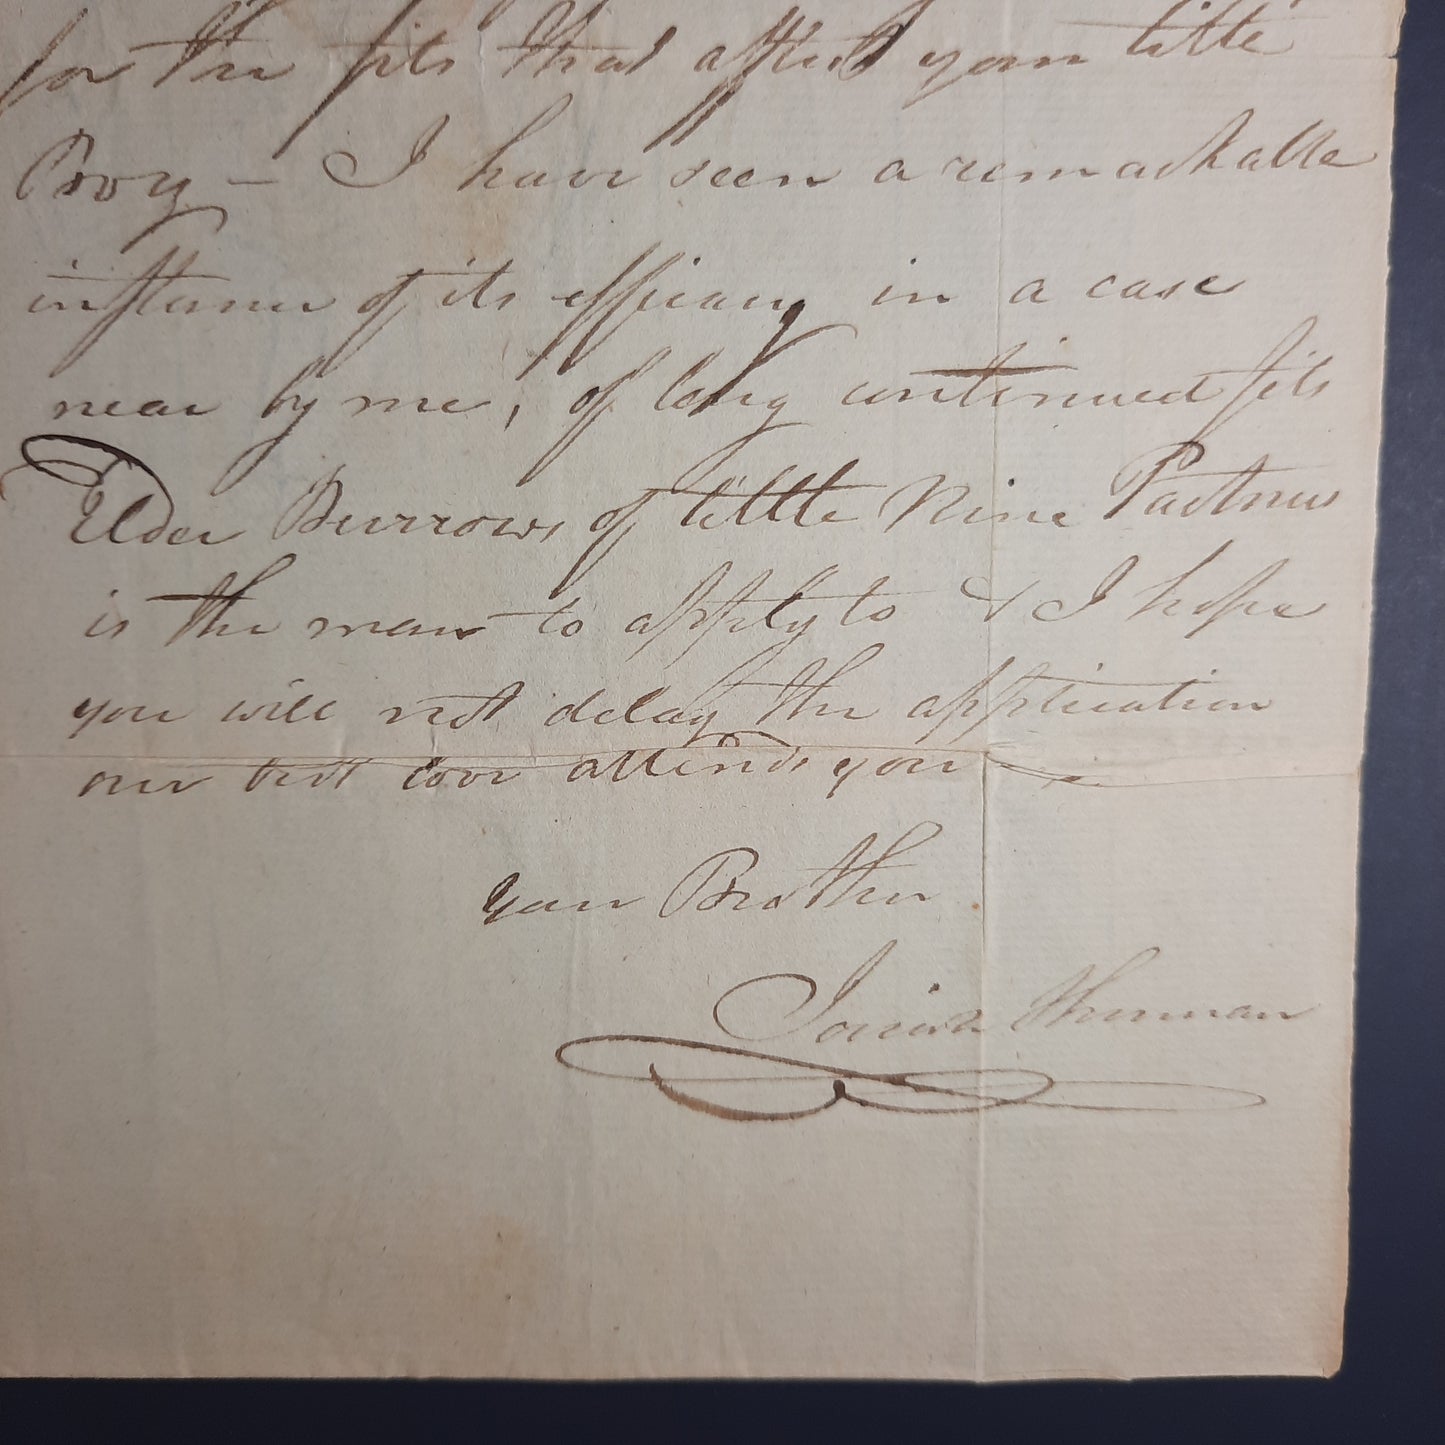 for the fits that afflict your little
Boy – I have seen a remarkable
instance of its efficacy in a case
near by me, of long continued fits
Elder Burrows of little Nine Partners
is the man to apply to & I hope
you will not delay the application
our best love attends you
your Brother
Thurman